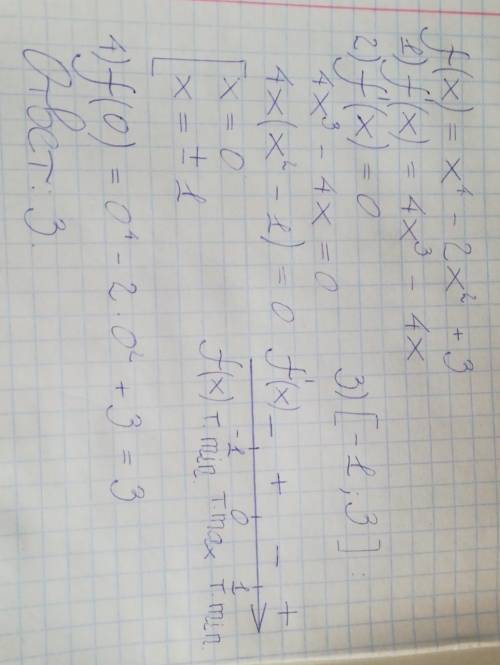 f(x) = x⁴ - 2x² + 3
1) f'(x) = 4x³ - 4x
2) f'(x) = 0
4x³ - 4x = 0
4x(x² - 1) = 0
[ x = 0
x = ± 1
3) [-1; 3] :
f'(x) - + - +
-1 0 1
f(x) т. min т. max т. min
4) f(0) = 0⁴ - 2·0² + 3 = 3
Ответ: 3.